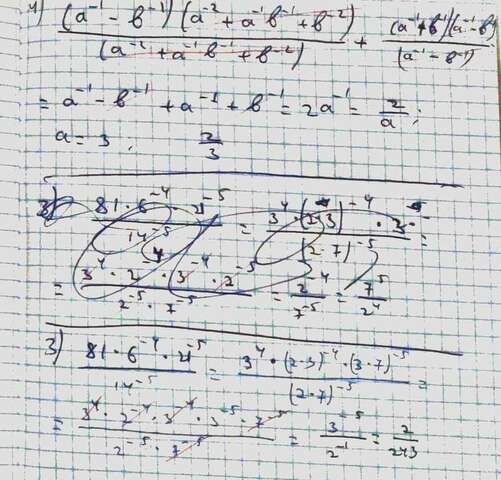 4) (a⁻¹ - b⁻¹)(a⁻² + a⁻¹b⁻¹ + b⁻²) / (a⁻² + a⁻¹b⁻¹ + b⁻²) + (a⁻¹ + b⁻¹)(a⁻¹ - b⁻¹) / (a⁻¹ - b⁻¹)
= a⁻¹ - b⁻¹ + a⁻¹ + b⁻¹ = 2a⁻¹ = 2/a ;
a = 3 ; 2/3
3) 81 · 6⁻⁴ · 21⁻⁵ / 14⁻⁵ = 3⁴ · (2·3)⁻⁴ · 3⁻⁵ / (2·7)⁻⁵ =
= 3⁴ · 2⁴ · 3⁻⁴ · 2⁻⁵ / 2⁻⁵ · 7⁻⁵ = 2⁻⁴ / 7⁻⁵ = 7⁵ / 2⁴
3) 81 · 6⁻⁴ · 21⁻⁵ / 14⁻⁵ = 3⁴ · (2·3)⁻⁴ · (3·7)⁻⁵ / (2·7)⁻⁵ =
= 3⁴ · 2⁻⁴ · 3⁻⁴ · 3⁻⁵ · 7⁻⁵ / 2⁻⁵ · 7⁻⁵ = 3⁻⁵ / 2⁻¹ = 2 / 243